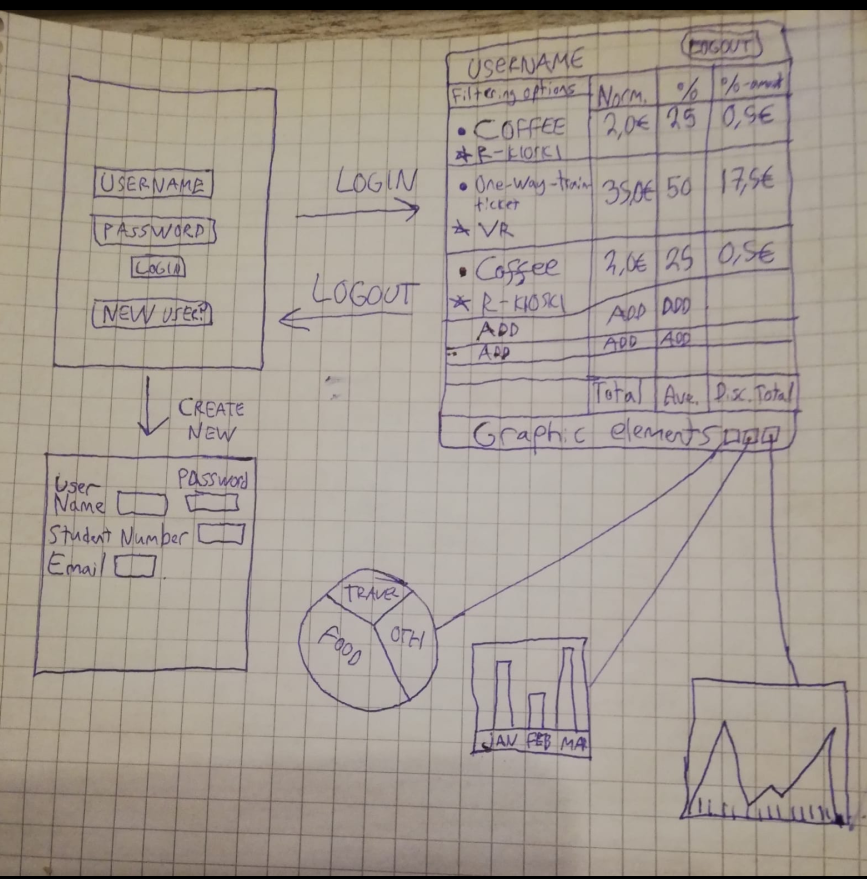 USERNAME
PASSWORD
LOGIN
NEW USER?
LOGIN
LOGOUT
CREATE
NEW
User
Name
PASSword
Student Number
Email
USERNAME LOGOUT
Filtering options Norm. % %-amount
• COFFEE 2,0€ 25 0,5€
* R-KIOSKI
• One-way-train 35,0€ 50 17,5€
ticket
* VR
• Coffee 2,0€ 25 0,5€
* R-KIOSKI
ADD ADD ADD
ADD ADD ADD
Total Ave. Disc. Total
Graphic elements
TRAVEL
FOOD
OTH
JAN FEB MAR